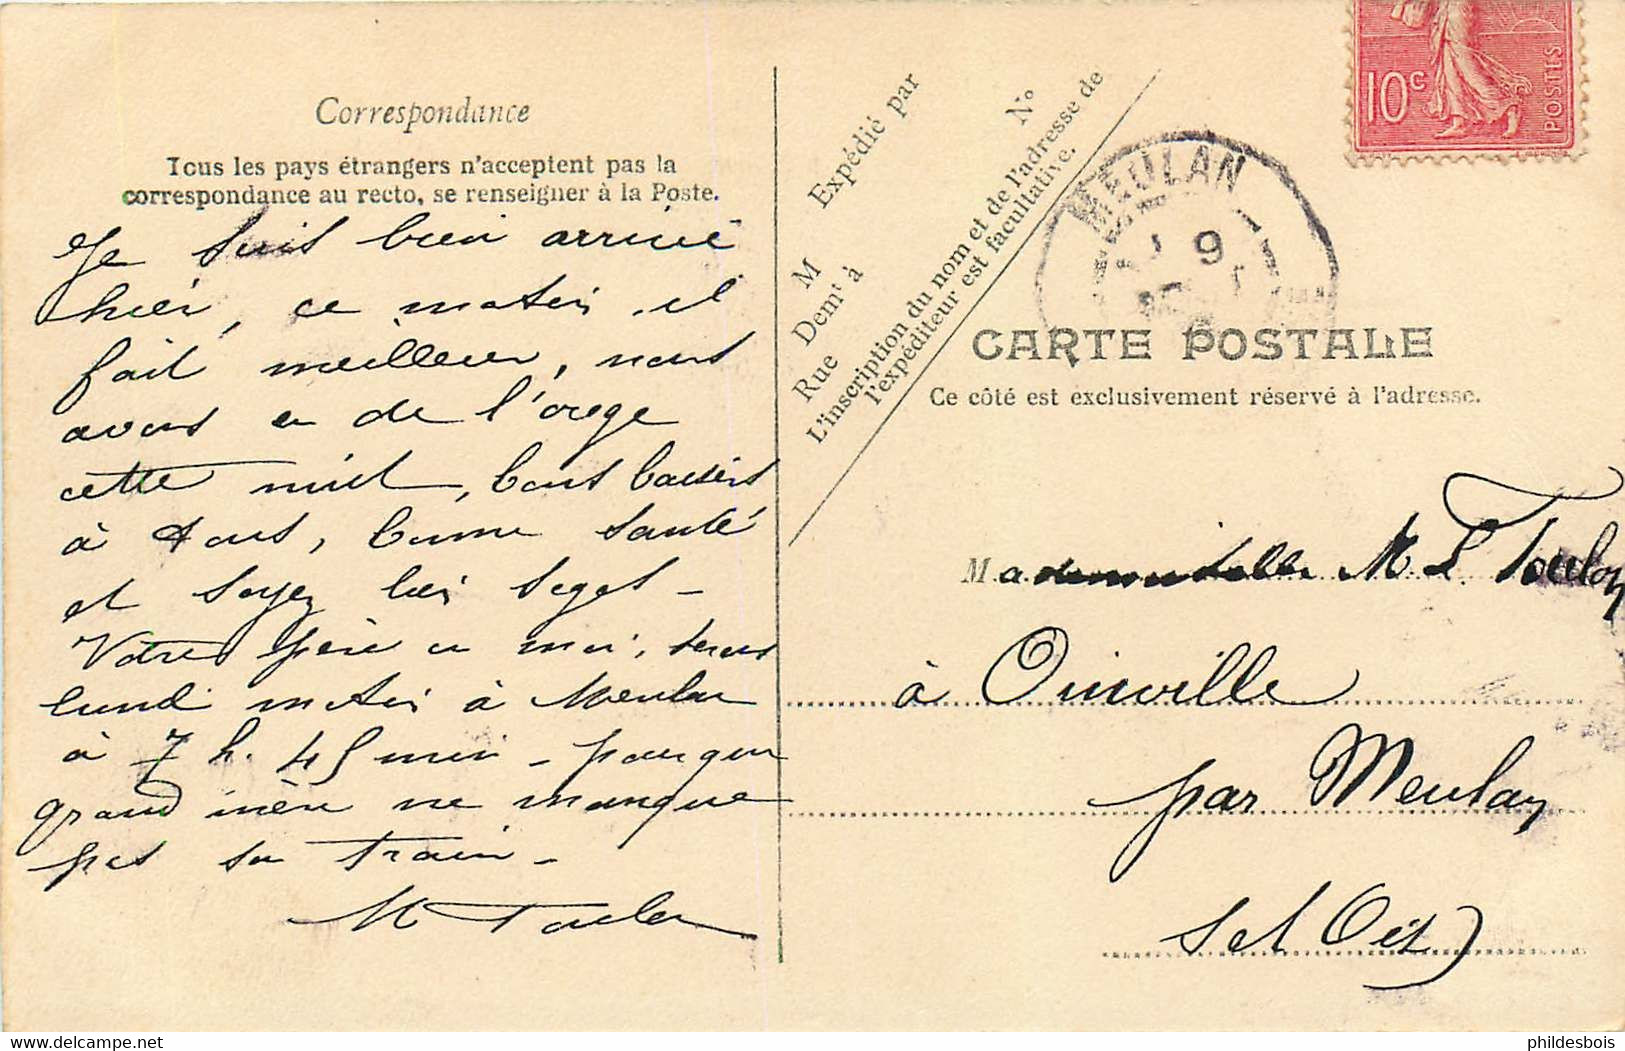 Correspondance
Tous les pays étrangers n'acceptent pas la
correspondance au recto, se renseigner à la Poste.
Je suis bien arrivé
hier, ce matin il
fait meilleur, nous
avons eu de l'orage
cette nuit, bons baisers
à tous, bonne santé
et soyez bien sages -
Votre père et moi, serons
lundi matin à Meulan
à 7 h. 45 min - pour que
grand mère ne manque
pas son train -
M Toulon
Expédié par
M
Demt à
Rue
No
L'inscription du nom et de l'adresse de
l'expéditeur est facultative.
10c
POSTES
MEULAN
9
CARTE POSTALE
Ce côté est exclusivement réservé à l'adresse.
Mademoiselle M L. Toulon
à Oinville
par Meulan
Set Oise)
phildesbois